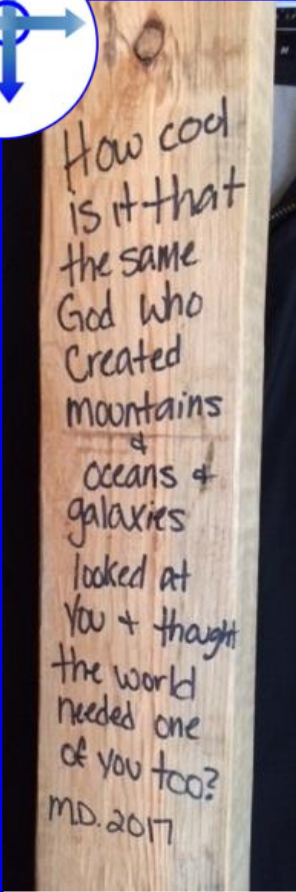 How cool
is it that
the same
God who
Created
mountains
&
oceans &
galaxies
looked at
You + thought
the world
needed one
of you too?
M.D. 2017